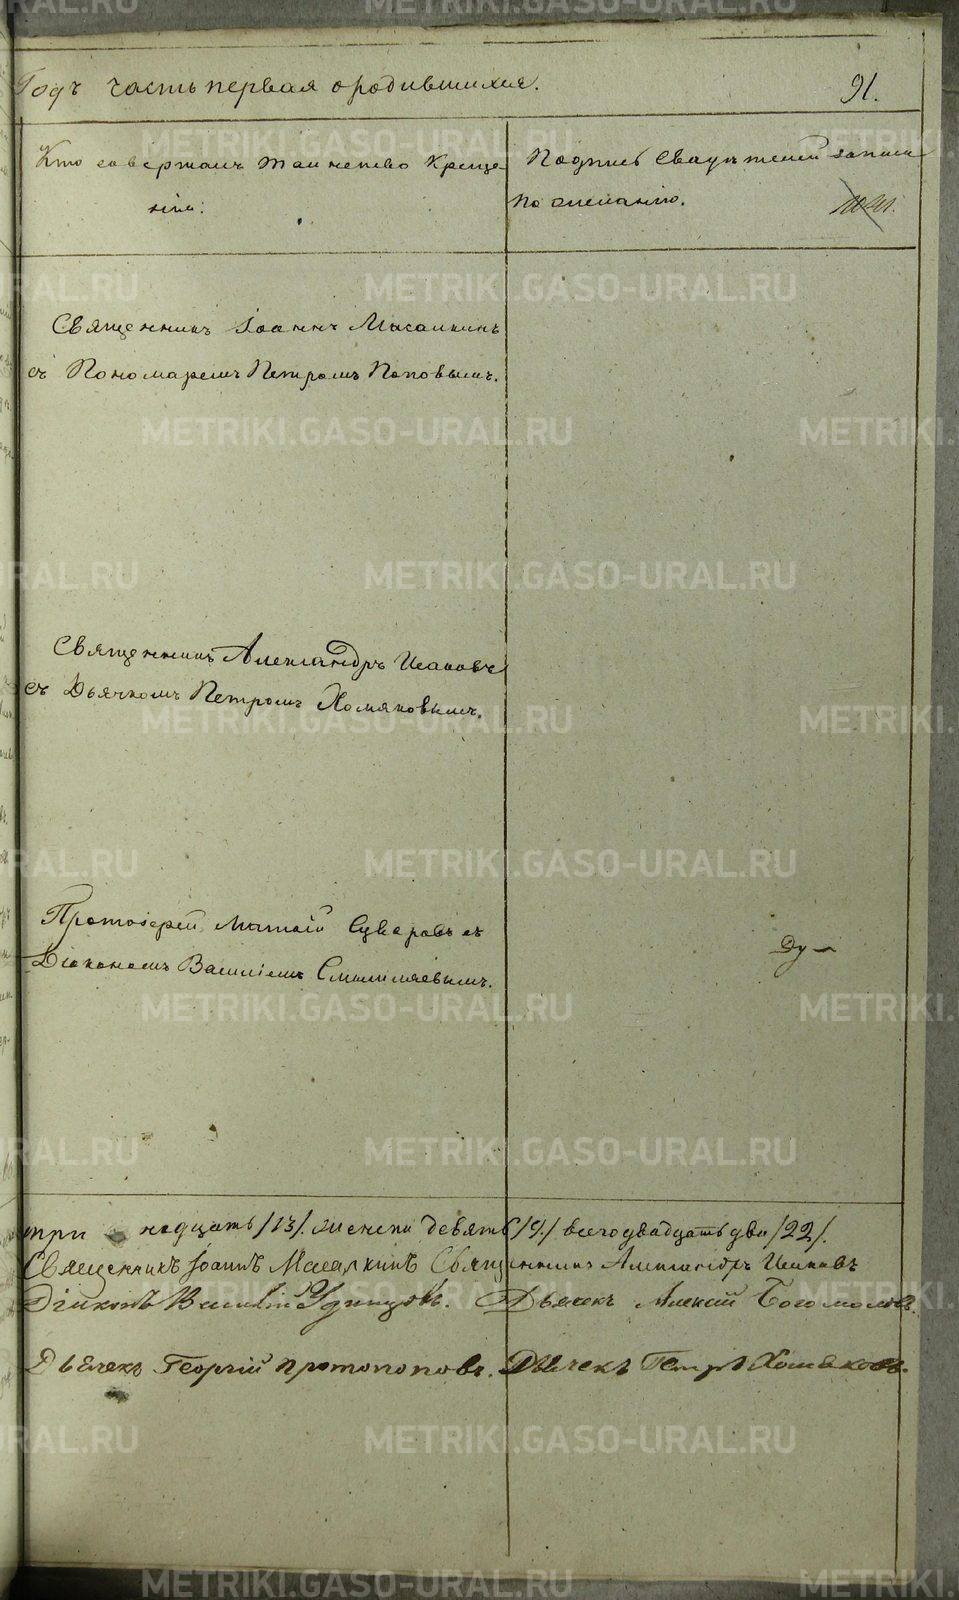 Годъ часть первая о родившихся. 91.
Кто совершалъ таинство Креще
нія.
Подпись Свидѣтелей записи
по желанію.
Священникъ Іоаннъ Масалкинъ
съ Пономаремъ Петромъ Поповымъ.
Священникъ Александръ Исаковъ
съ Дьячкомъ Петромъ Хомяковымъ.
Протоіерей Матѳій Суваровъ съ
Діакономъ Василіемъ
три надцать /13/. женска девять /9/. всего двадцать два /22/.
Священникъ Іоаннъ Масалкинъ Священникъ Александръ Исаковъ
Діаконъ Василій Удинцовъ. Дьячекъ Алексій Богомоловъ.
Дьячекъ Георгій Протопоповъ. Дьячекъ Петръ Хомяковъ.
METRIKI.GASO-URAL.RU